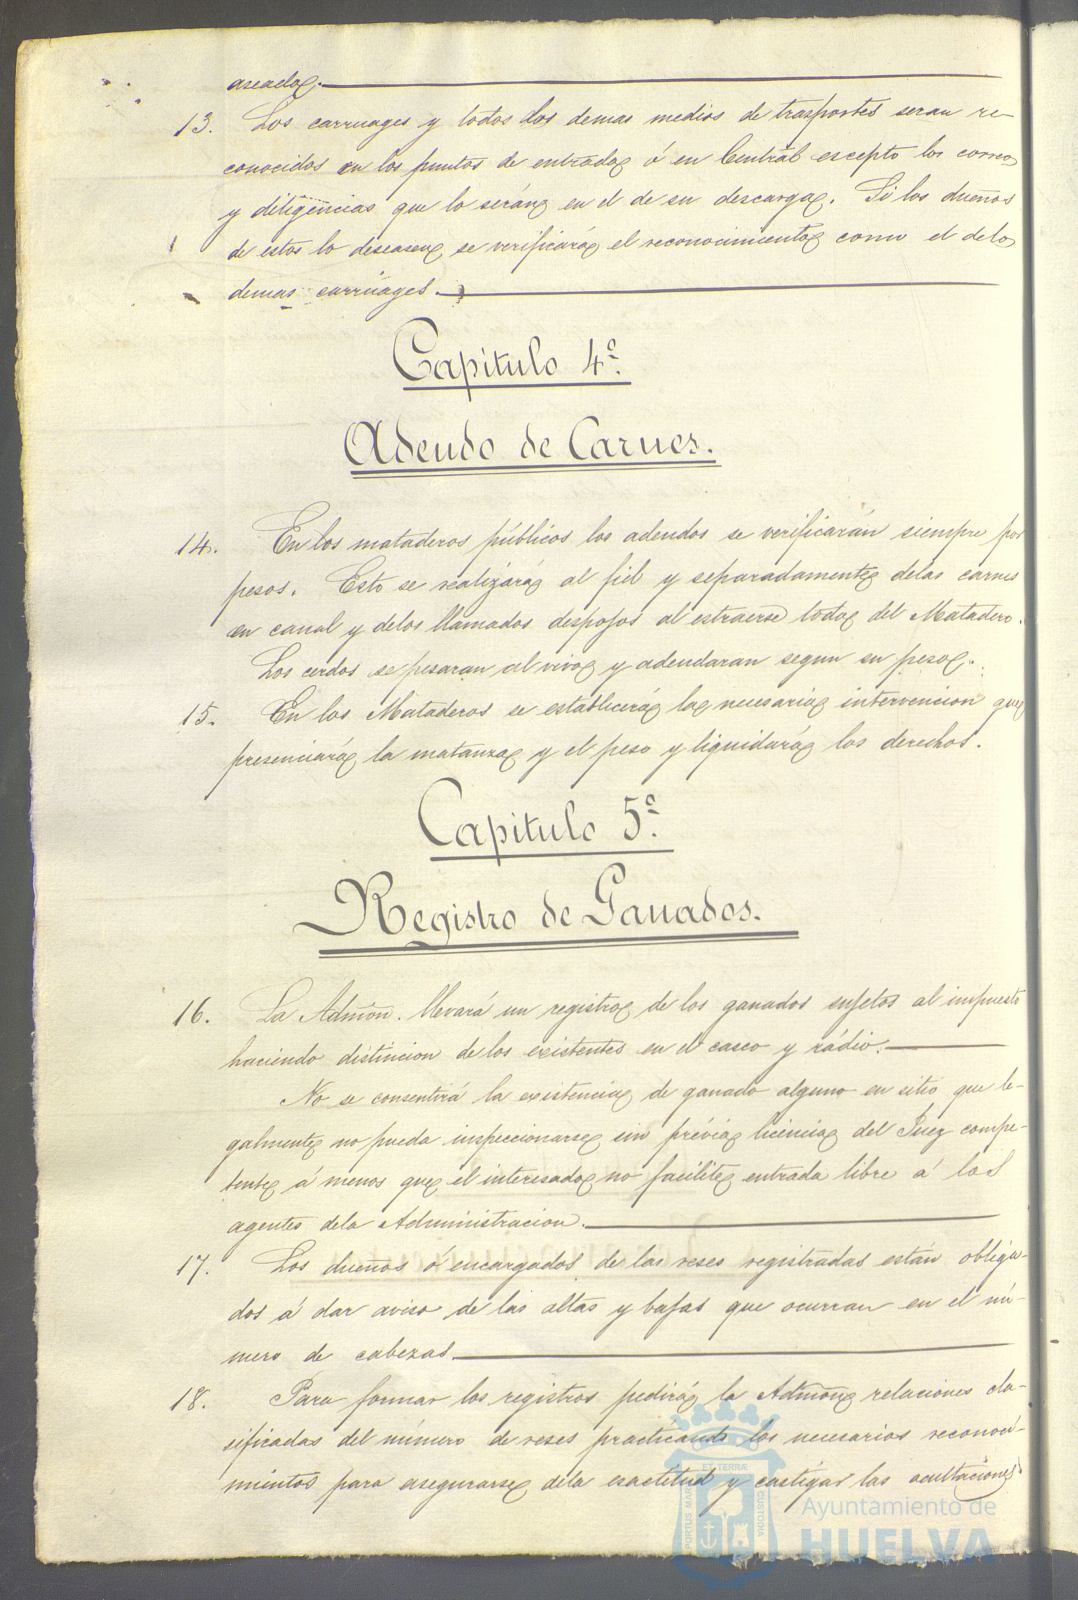 aseado.
13. Los carruages y todos los demas medios de trasportes seran re-
conocidos en los puntos de entrada ó en Central escepto los correos
y diligencias que lo serán en el de su descarga. Si los dueños
de estos lo deseasen se verificará el reconocimiento como el de los
demas carruages.
Capitulo 4º.
Adeudo de Carnes.
14. En los mataderos públicos los adeudos se verificarán siempre por
pesos. Esto se realizará al fiel y separadamente delas carnes
en canal y delos llamados despojos al estraerse todo del Matadero.
Los cerdos se pesaran al vivo y adeudaran segun su peso.
15. En los Mataderos se establecerá la necesaria intervencion que
presenciará la matanza y el peso y liquidará los derechos.
Capitulo 5º.
Registro de Ganados.
16. La Admón. llevará un registro de los ganados sujetos al impuesto
haciendo distincion de los existentes en el casco y rádio.
No se consentirá la existencia de ganado alguno en sitio que le-
galmente no pueda inspeccionarse sin prévia licencia del Juez compe-
tente á menos que el interesado no facilite entrada libre á los
agentes dela Administracion.
17. Los dueños ó encargados de las reses registradas están obliga-
dos á dar aviso de las altas y bajas que ocurran en el nú-
mero de cabezas.
18. Para formar los registros pedirá la Admón relaciones cla-
sificadas del número de reses practicando los necesarios reconoci-
mientos para asegurarse dela esactitud y castigar las ocultaciones
PORTUS MARIS ET TERRÆ CUSTODIA
Ayuntamiento de
HUELVA